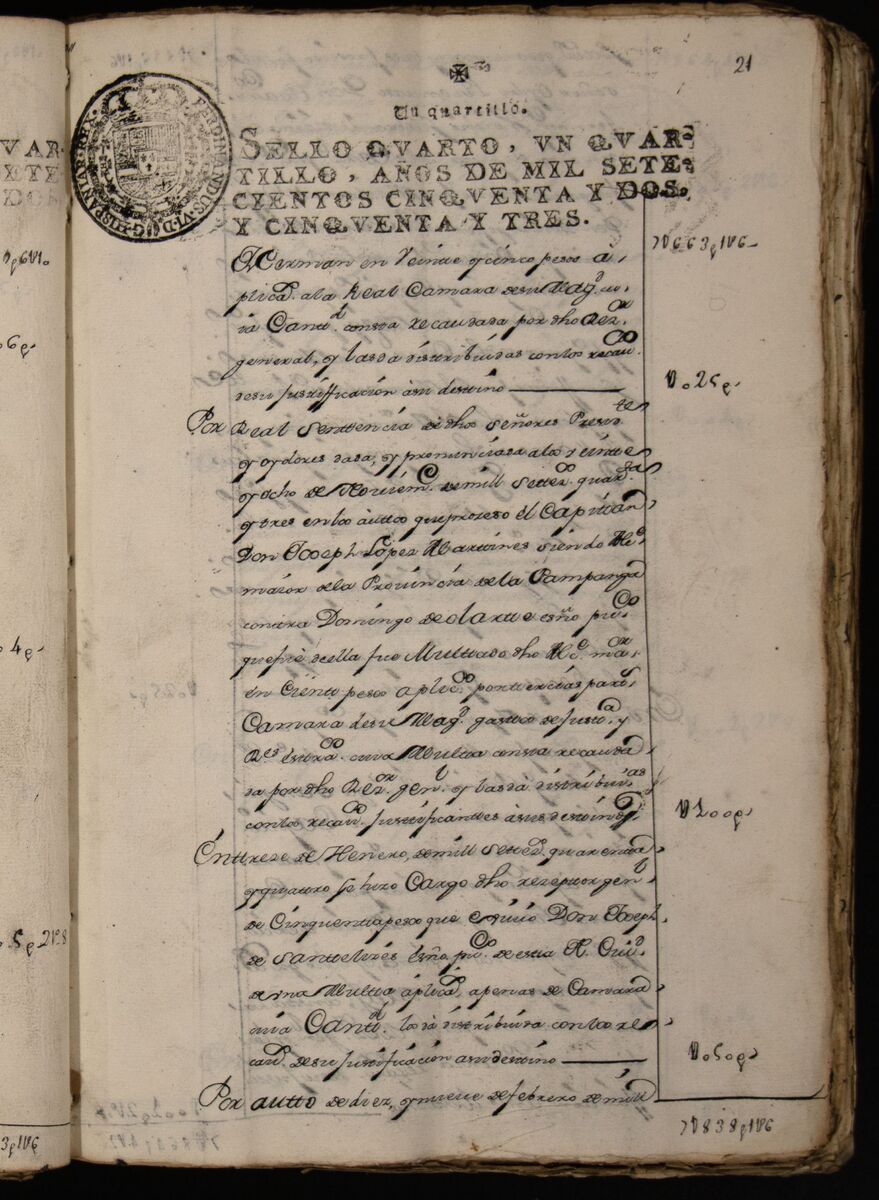 21
Un quartillo.
SELLO QVARTO, VN QVAR-
TILLO, AÑOS DE MIL SETE-
CIENTOS CINQVENTA Y DOS,
Y CINQVENTA Y TRES.
FERDINANDUS VI D G HISPANIAR REX
German en Veinte y cinco pesos a
plicad.s ala Real Camara de su Mag.d cu
ia Cantt.d consta recaudada por dho Rez.or
general, y las da distribuidas con los recau.
de su justificación â su destino
V.o25p.
Por Real Senttencia de dhos Señores Presid.te
y oydores dada, y pronunciada alos Veintte
y ocho de Noviem.e de mill Settez.os quar.ta
y tres en los auttos que proceso el Capittan
Don Joseph Lopez Martines siendo Alc.e
maior dela Provincia de la Pampanga
contra Domingo de Olarte esño pu.co
que fue de ella fue Multtado dho Alc.e ma.or
en Cientt pesos aplic.os por tercias partt.s
Camara de su Mag.d gastos de Justt.a y
R.es estra.os cuia Multta consta recauda
da por dho Rez.or gen.l y las dâ distribuid.as
con los recau.os Justtificanttes â sus destinos
V100p.
En ttreze de Henero, de mill Settez.os quarentta
y quatro se hizo Cargo dho rezeptor gen.l
de Cinquentta pesos que exivio Don Joseph
de Santtelizes Esño pu.co de estta R. Aud.a
de una Multta aplicad.a apenas de Camara
cuia Cantt.d la dâ distribuida con los re
caud.s de su justtificación a su destino
V.o50p.
Por autto de diez, y nueve de febrero de mill
7V663p1V6
7V838p1V6